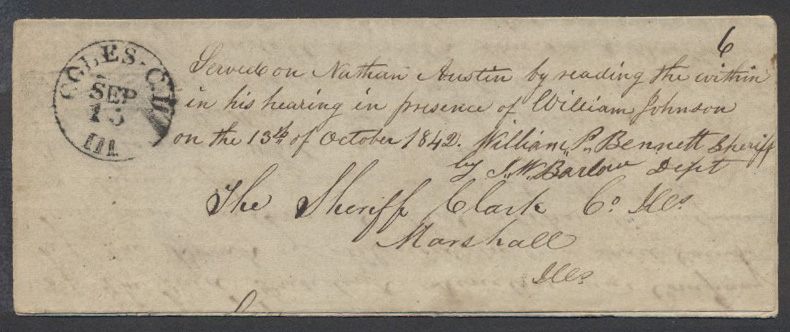 6
COLES-C.H.
SEP
13
Ill
Served on Nathan Austin by reading the within
in his hearing in presence of William Johnson
on the 13th of October 1842. William P. Bennett Sheriff
by S. W. Barlow Dept
The Sheriff Clark Co Ills
Marshall
Ills